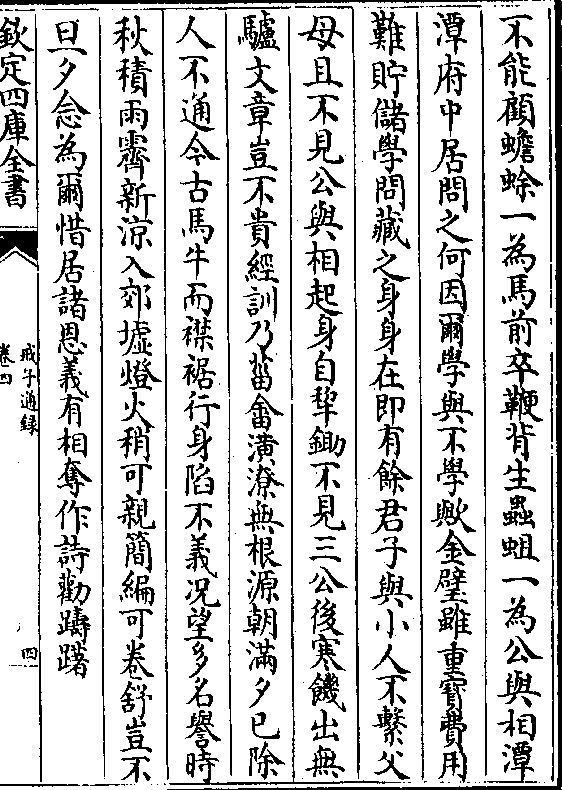 不能顧蟾蜍一為馬前卒鞭背生蟲蛆一為公與相潭
潭府中居問之何因爾學與不學歟金璧雖重寳費用
難貯儲學問藏之身身在即有餘君子與小人不繫父
母且不見公與相起身自犂鋤不見三公後寒饑出無
驢文章豈不貴經訓乃菑畬潢潦無根源朝滿夕已除
人不通今古馬牛而襟裾行身陷不義况望多名譽時
秋積雨霽新涼入郊墟燈火稍可親簡編可卷舒豈不
旦夕念為爾惜居諸恩義有相奪作詩勸躊躇
欽定四庫全書
戒子通錄
卷四
四